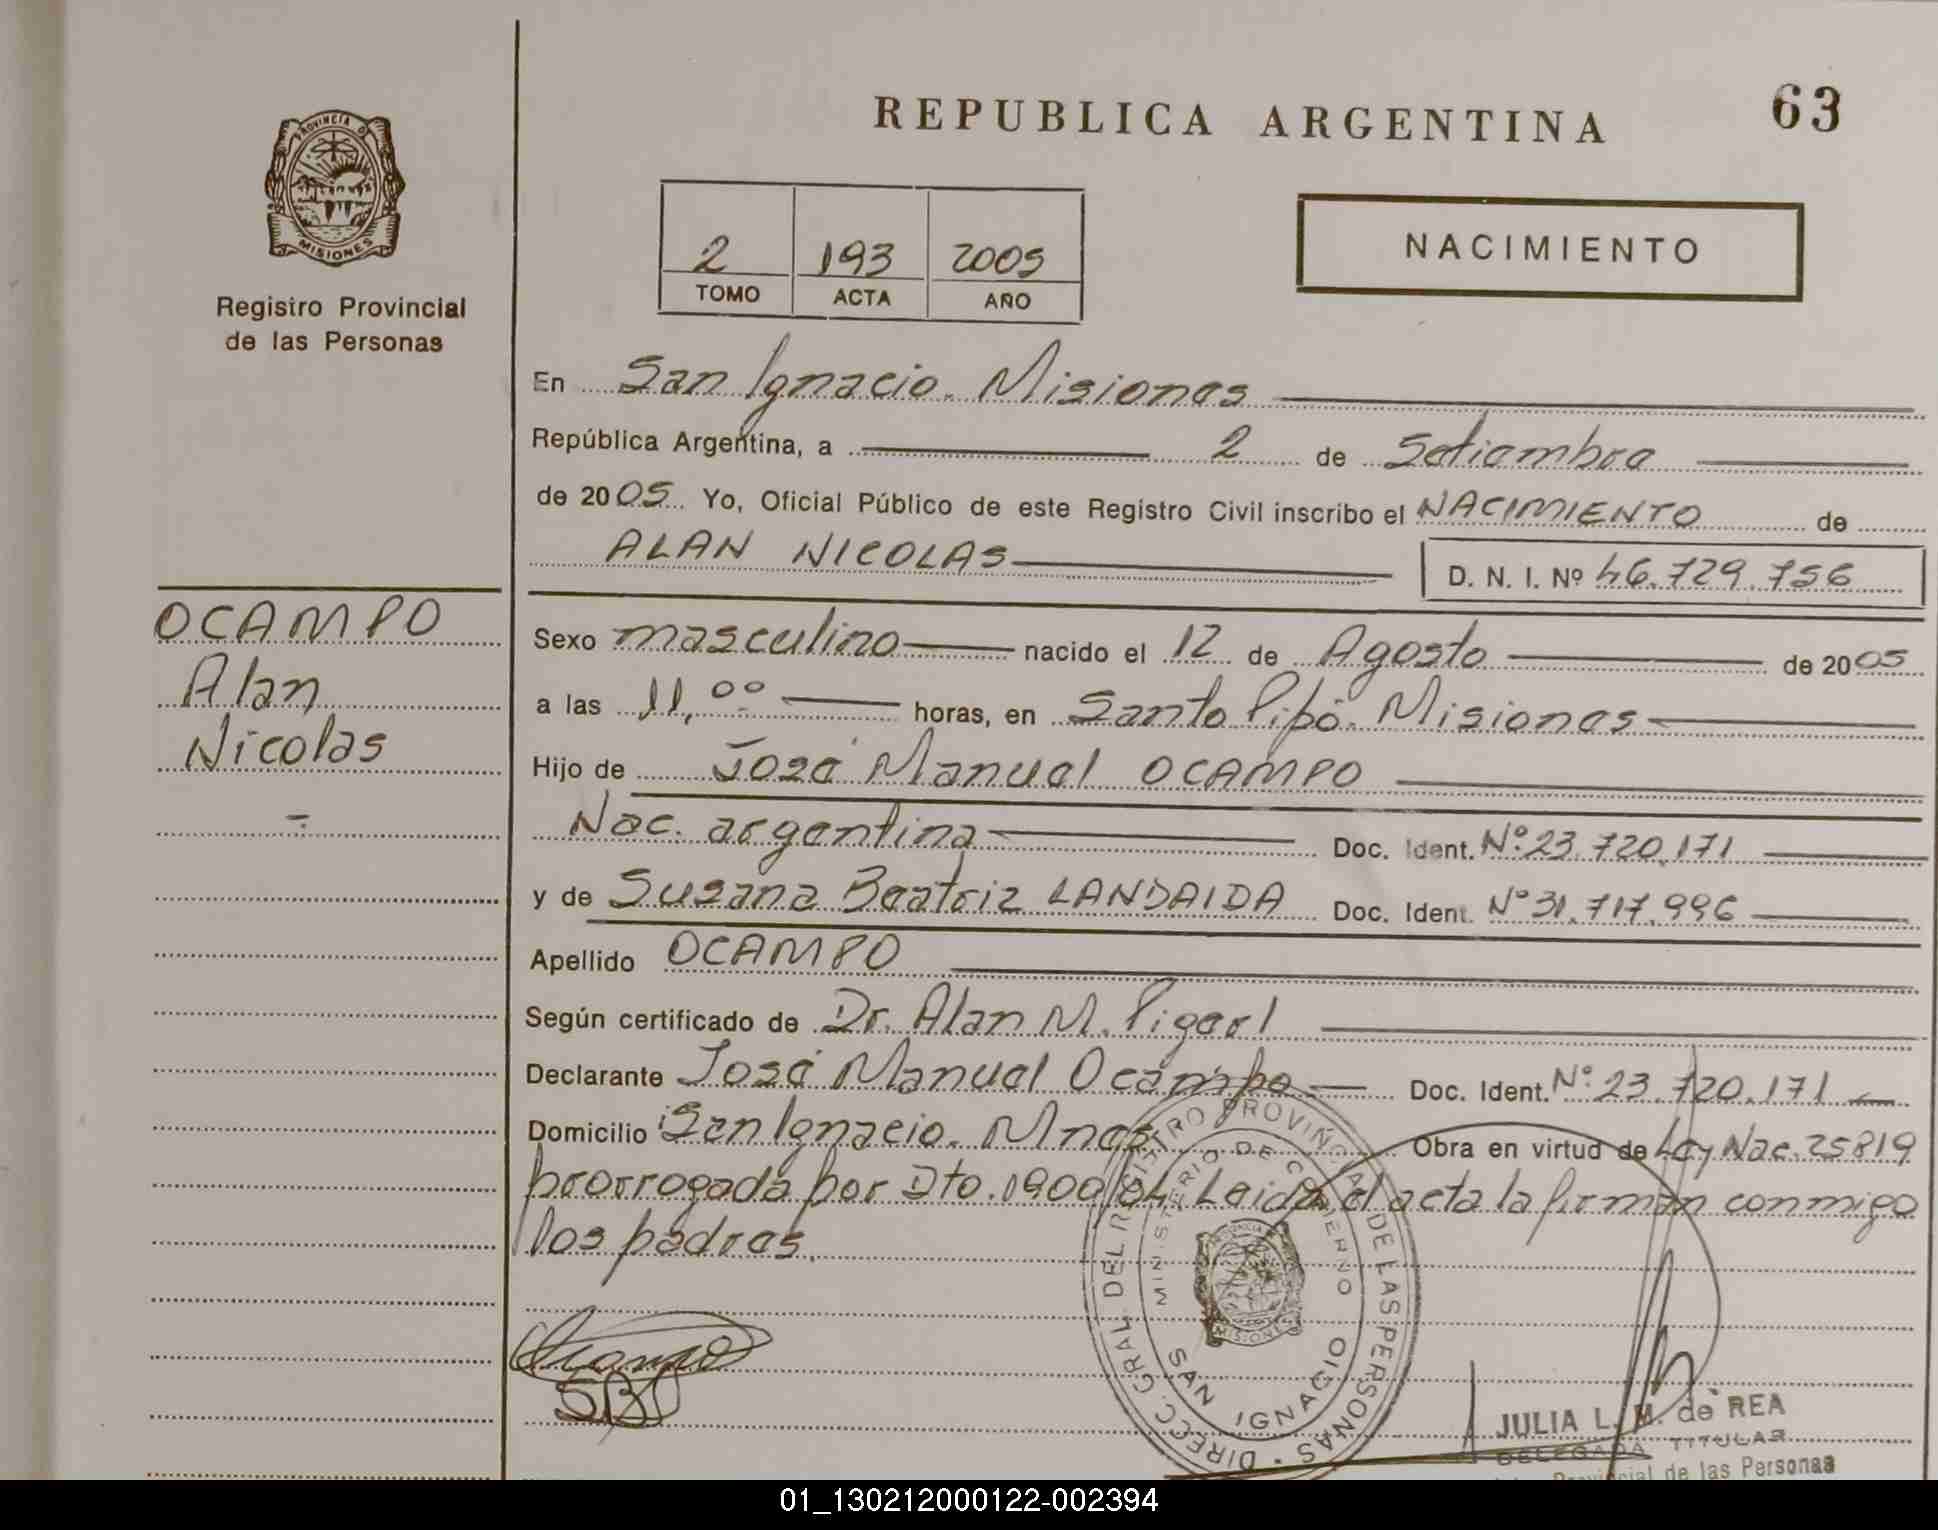 REPUBLICA ARGENTINA
63
PROVINCIA D
MISIONES
Registro Provincial
de las Personas
2 193 2005
TOMO ACTA AÑO
NACIMIENTO
En San Ignacio. Misiones
República Argentina, a 2 de Setiembre
de 2005 Yo, Oficial Público de este Registro Civil inscribo el NACIMIENTO de
ALAN NICOLAS D. N. I. Nº 46.729.756
OCAMPO
Alan
Nicolas
Sexo masculino nacido el 12 de Agosto de 2005
a las 11,00 horas, en Santo Pipó. Misiones
Hijo de José Manuel OCAMPO
Nac. argentina Doc. Ident. Nº 23.720.171
y de Susana Beatriz LANDAIDA Doc. Ident. Nº 31.717.996
Apellido OCAMPO
Según certificado de Dr. Alan M. Pigerl
Declarante José Manuel Ocampo Doc. Ident. Nº 23.720.171
Domicilio San Ignacio. Mnes. Obra en virtud de Ley Nac. 25819
prorrogada por Dto. 1900/04. Leida el acta la firman conmigo
los padres.
DIRECC. GRAL. DEL REGISTRO PROVINCIAL DE LAS PERSONAS
MINISTERIO DE GOBIERNO
MISIONES
SAN IGNACIO
Ocampo
JULIA L. M. de REA
DELEGADA TITULAR
Provincial de las Personas
01_130212000122-002394